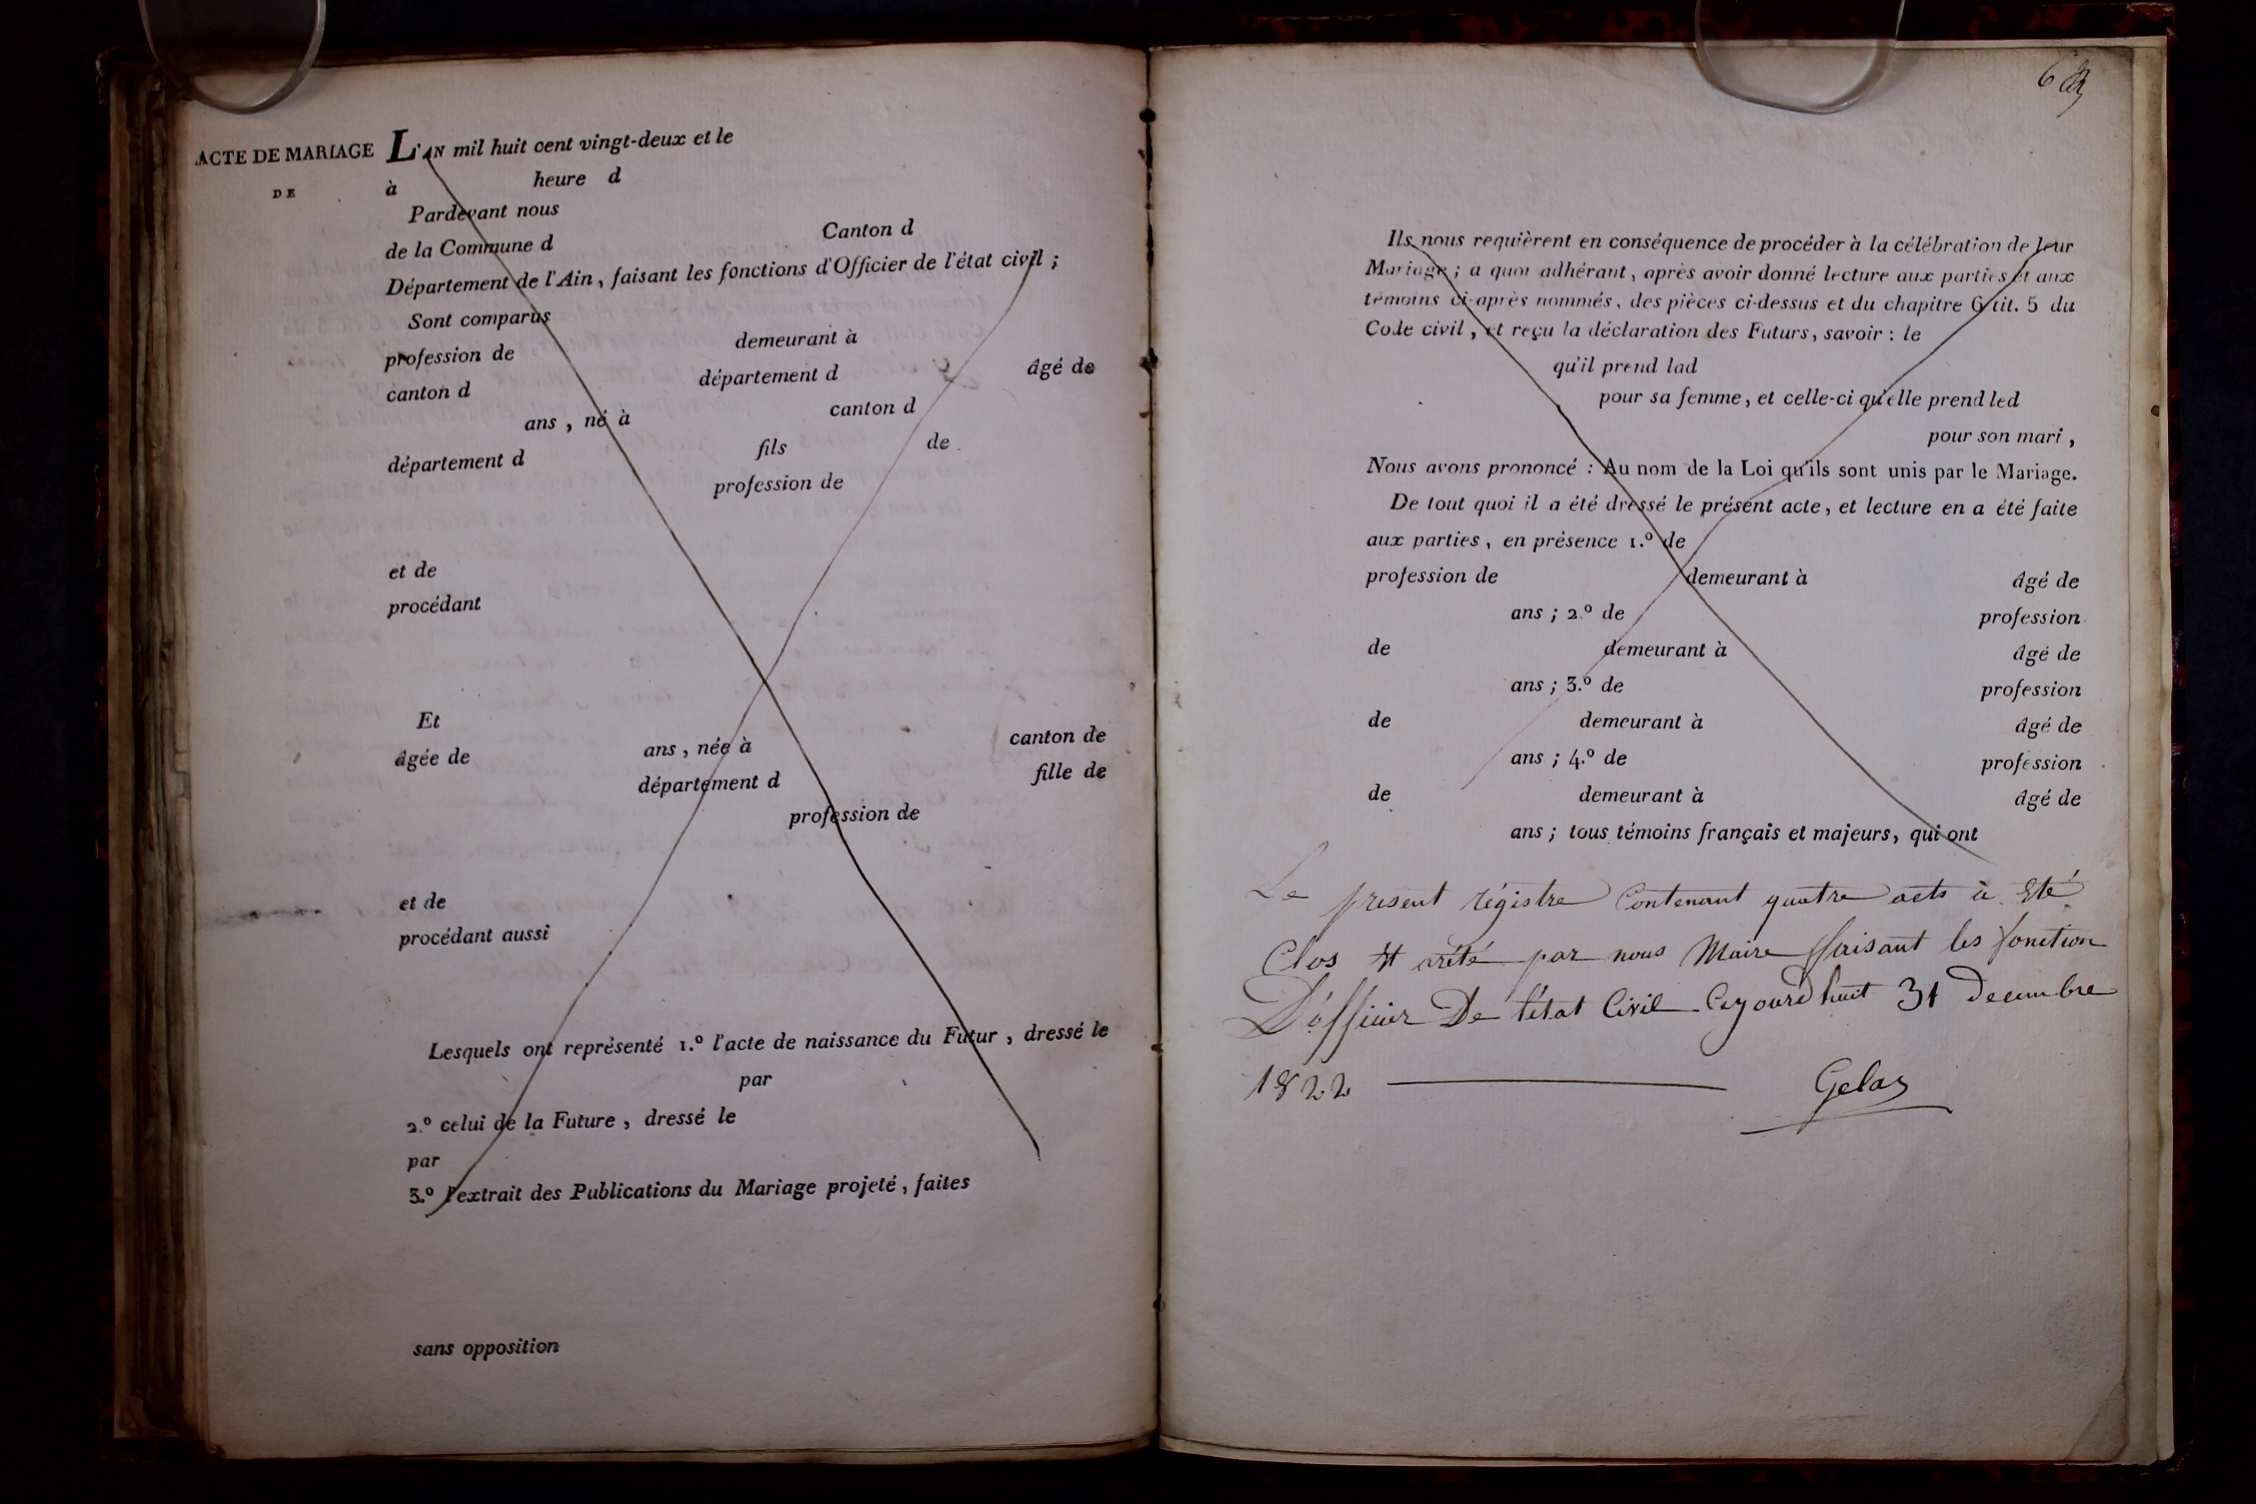 ACTE DE MARIAGE
DE
L'AN mil huit cent vingt-deux et le
à heure d
Pardevant nous
de la Commune d Canton d
Département de l'Ain, faisant les fonctions d'Officier de l'état civil ;
Sont comparus
profession de demeurant à
canton d département d âgé de
ans , né à canton d
département d fils de
profession de
et de
procédant
Et
âgée de ans , née à canton de
département d fille de
profession de
et de
procédant aussi
Lesquels ont représenté 1.º l'acte de naissance du Futur , dressé le
par
2.º celui de la Future , dressé le
par
3.º l'extrait des Publications du Mariage projeté , faites
sans opposition
6
Ils nous requièrent en conséquence de procéder à la célébration de leur
Mariage ; a quoi adhérant , après avoir donné lecture aux parties et aux
témoins ci-après nommés , des pièces ci-dessus et du chapitre 6 tit. 5 du
Code civil , et reçu la déclaration des Futurs , savoir : le
qu'il prend lad
pour sa femme , et celle-ci qu'elle prend led
pour son mari ,
Nous avons prononcé : Au nom de la Loi qu'ils sont unis par le Mariage.
De tout quoi il a été dressé le présent acte , et lecture en a été faite
aux parties , en présence 1.º de
profession de demeurant à âgé de
ans ; 2.º de profession
de demeurant à âgé de
ans ; 3.º de profession
de demeurant à âgé de
ans ; 4.º de profession
de demeurant à âgé de
ans ; tous témoins français et majeurs , qui ont
Le present régistre Contenant quatre acts à Eté
Clos Et arété par nous Maire ffaisant les fonction
D'officier De l'état Civil Cejourdhuit 31 Decembre
1822 Gelas